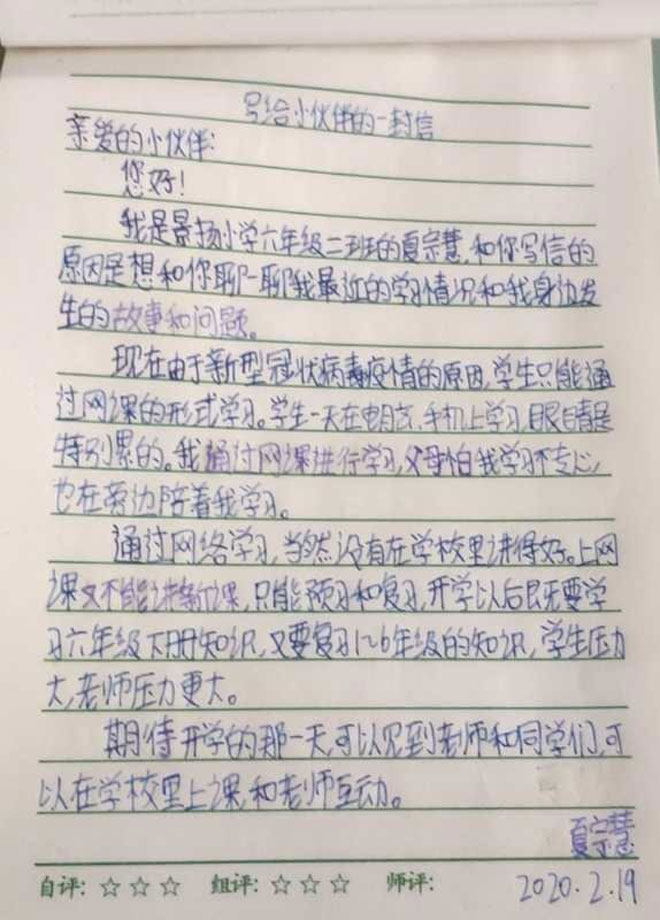 写给小伙伴的一封信
亲爱的小伙伴:
您好!
我是景扬小学六年级二班的夏宗慧,和你写信的
原因是想和你聊一聊我最近的学习情况和我身边发
生的故事和问题。
现在由于新型冠状病毒疫情的原因,学生只能通
过网课的形式学习。学生一天在电脑、手机上学习,眼睛是
特别累的。我通过网课进行学习,父母怕我学习不专心,
也在旁边陪着我学习。
通过网络学习,当然没有在学校里讲得好。上网
课又不能讲新课,只能预习和复习,开学以后既要学
习六年级下册知识,又要复习1~6年级的知识,学生压力
大,老师压力更大。
期待开学的那一天,可以见到老师和同学们,可
以在学校里上课,和老师互动。
夏宗慧
自评: ☆ ☆ ☆ 组评: ☆ ☆ ☆ 师评: 2020.2.19